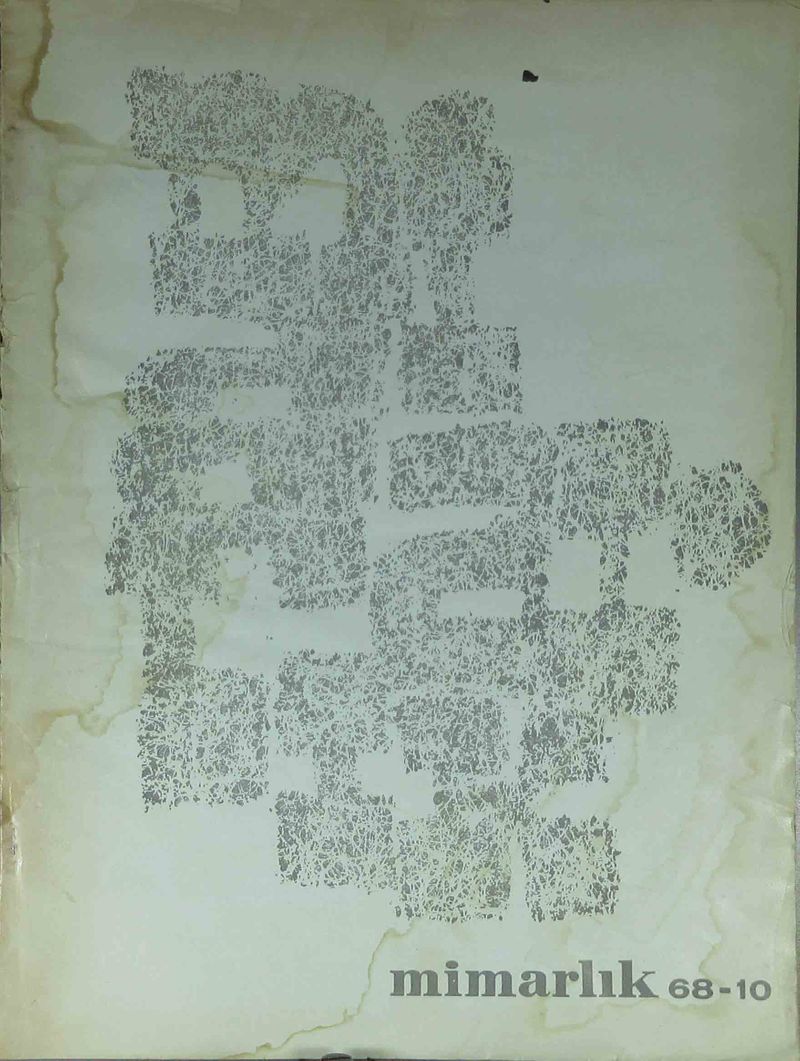 mimarlık 68-10